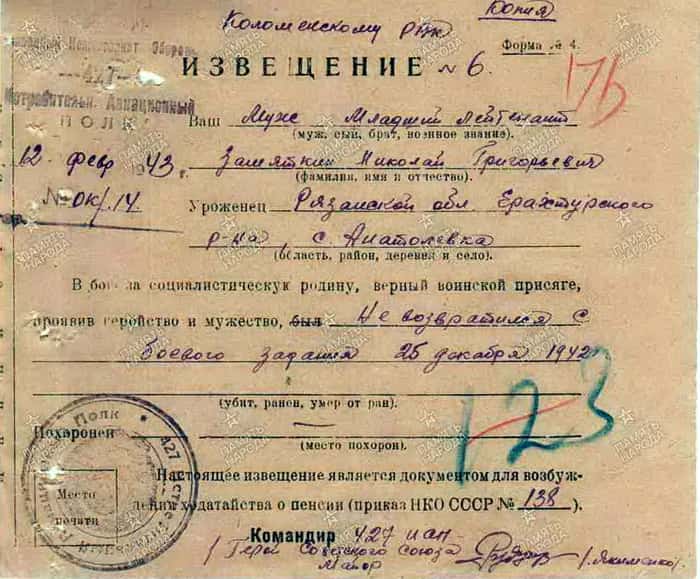 Копия
Коломенскому РВК
Форма № 4.
Народный Комиссариат Обороны
427
Истребительн. Авиационный
ПОЛК
ИЗВЕЩЕНИЕ № 6.
176
Ваш Муж Младший Лейтенант
(муж, сын, брат, военное звание).
12 февр 1943 г.
Замяткин Николай Григорьевич
(фамилия, имя и отчество).
№ ОК/.14
Уроженец Рязанской обл. Ерахтурского
р-на, с. Анатолевка
(область, район, деревня и село).
В бою за социалистическую родину, верный воинской присяге,
проявив геройство и мужество, был Не возвратился с
боевого задания 25 декабря 1942
(убит, ранен, умер от ран).
123
Похоронен —
(место похорон).
Настоящее извещение является документом для возбуж-
дения ходатайства о пенсии (приказ НКО СССР № 138).
Место
печати
Полк * 427 Истреб
Командир 427 иап
/ Герой Советского Союза
Майор /Якименко/.
ПАМЯТЬ НАРОДА